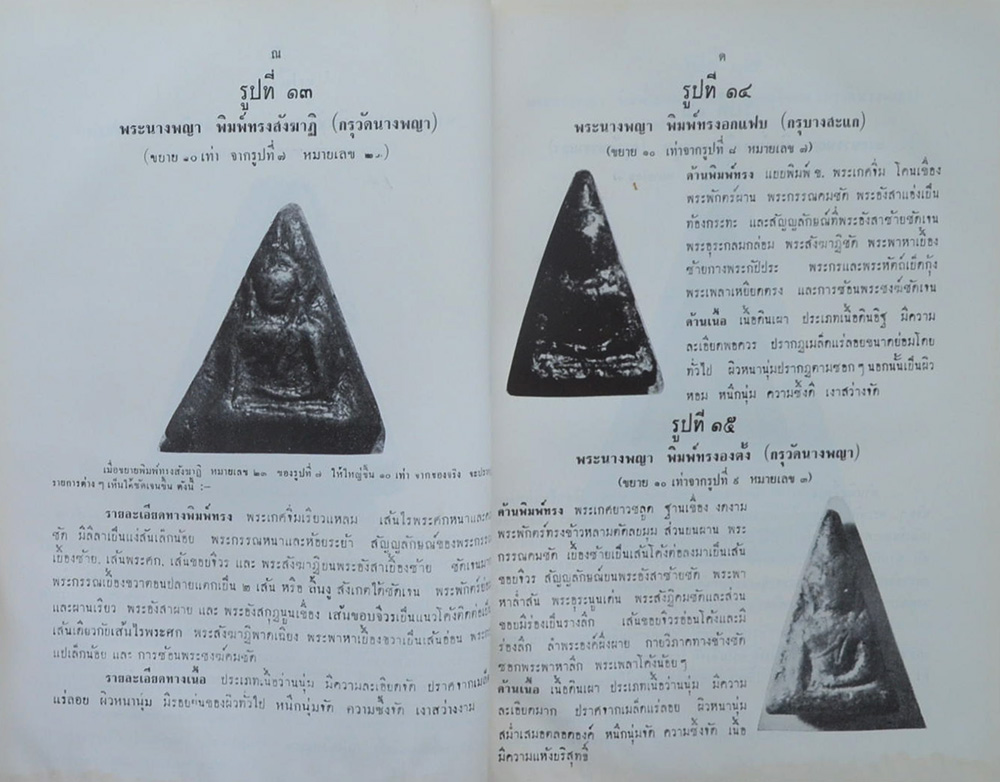 ณ
รูปที่ ๑๓
พระนางพญา พิมพ์ทรงสังฆาฏิ (กรุวัดนางพญา)
(ขยาย ๑๐ เท่า จากรูปที่ ๗ หมายเลข ๒๓)
เมื่อขยายพิมพ์ทรงสังฆาฏิ หมายเลข ๒๓ ของรูปที่ ๗ ให้ใหญ่ขึ้น ๑๐ เท่า จากของจริง จะปราก
รายการต่าง ๆ เห็นได้ชัดเจนขึ้น ดังนี้ :–
รายละเอียดทางพิมพ์ทรง พระเกศจิ่มเรียวแหลม เส้นไรพระศกหนาและ
ชัด มีลีลาเป็นแง่งเล็กน้อย พระกรรณหนาและห้อยระย้า สัญญลักษณ์ของพระกรร
เบื้องซ้าย, เส้นพระศก, เส้นซอยจีวร และ พระสังฆาฏิบนพระอังสาเบื้องซ้าย ชัดเจนมาก
พระกรรณเบื้องขวาตอนปลายแตกเป็น ๒ เส้น หรือ ลิ้นงู สังเกตได้ชัดเจน พระพักตร์
และผานเรียว พระอังสาผาย และ พระอังสกุฏนูนเขื่อง เส้นขอบจีวรเป็นแนวโค้งติดต่อ
เส้นเดียวกับเส้นไรพระศก พระสังฆาฏิพาดเฉียง พระพาหาเบื้องขวาเป็นเส้นอ่อน
แปเล็กน้อย และ การซ้อนพระชงฆ์คมชัด
รายละเอียดทางเนื้อ ประเภทเนื้อว่านนุ่ม มีความละเอียดจัด ปราศจากเมล็ด
แร่ลอย ผิวหนานุ่ม มีรอยย่นของผิวทั่วไป หนึกนุ่มจัด ความซึ้งจัด เงาสว่างงาม
ด
รูปที่ ๑๔
พระนางพญา พิมพ์ทรงอกแฟบ (กรุบางสะแก)
(ขยาย ๑๐ เท่าจากรูปที่ ๘ หมายเลข ๗)
ด้านพิมพ์ทรง แยยพิมพ์ ช. พระเกศจิ่ม โคนเขื่อง
พระพักตร์ผาน พระกรรณคมชัด พระอังสาแอ่งเป็น
ท้องกระทะ และสัญญลักษณ์ที่พระอังสาซ้ายชัดเจน
พระอุระกลมกล่อม พระสังฆาฏิชัด พระพาหาเบื้อง
ซ้ายกางพระกัประ พระกรและพระหัตถ์เย็ดกุ้ง
พระเพลาเหยียดตรง และการซ้อนพระชงฆ์ชัดเจน
ด้านเนื้อ เนื้อดินเผา ประเภทเนื้อดินอิฐ มีความ
ละเอียดพอควร ปรากฏเมล็ดแร่ลอยขนาดย่อมโดย
ทั่วไป ผิวหนานุ่มปรากฏตามซอก ๆ นอกนั้นเป็นผิว
หอม หนึกนุ่ม ความซึ้งดี เงาสว่างจัด
รูปที่ ๑๕
พระนางพญา พิมพ์ทรงองตั้ง (กรุวัดนางพญา)
(ขยาย ๑๐ เท่าจากรูปที่ ๙ หมายเลข ๓)
ด้านพิมพ์ทรง พระเกศยาวชลูด ฐานเขื่อง งดงาม
พระพักตร์ทรงข้าวหลามตัดลบมุม ส่วนบนผาน พระ
กรรณคมชัด เบื้องซ้ายเป็นเส้นโค้งต่อลงมาเป็นเส้น
ซอยจีวร สัญญลักษณ์บนพระอังสาซ้ายชัด พระพา
หาล่ำสัน พระอุระนูนเด่น พระสังฏิคมชัดและส่วน
ซอยมีร่องเป็นรางลึก เส้นซอยจีวรอ่อนโค้งและมี
ร่องลึก ลำพระองค์ผึ่งผาย กายวิภาคทางช้างชัด
ซอกพระพาหาลึก พระเพลาโค้งน้อย ๆ
ด้านเนื้อ เนื้อดินเผา ประเภทเนื้อว่านนุ่ม มีความ
ละเอียดมาก ปราศจากเมล็ดแร่ลอย ผิวหนานุ่ม
สม่ำเสมอตลอดองค์ หนึกนุ่มจัด ความซึ้งจัด เนื้อ
มีความแห้งบริสุทธิ์